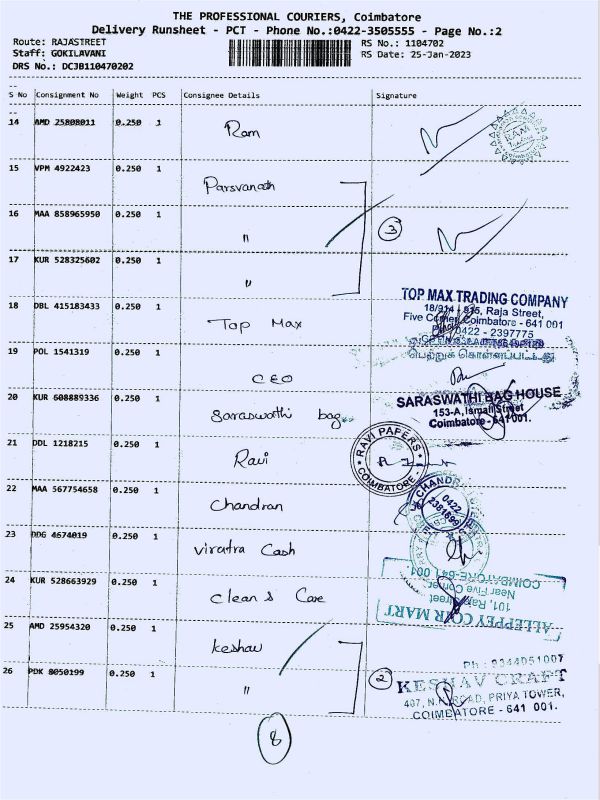 THE PROFESSIONAL COURIERS, Coimbatore
Delivery Runsheet - PCT - Phone No.:0422-3505555 - Page No.:2
Route: RAJASTREET
Staff: GOKILAVANI
DRS No.: DCJB110470202
RS No.: 1104702
RS Date: 25-Jan-2023
S No Consignment No Weight PCS Consignee Details Signature
14 AMD 25808011 0.250 1 Ram
RAM
15 VPM 4922423 0.250 1 Parsvanath
16 MAA 858965950 0.250 1 "
3
17 KUR 528325602 0.250 1 "
18 DBL 415183433 0.250 1 Top Max
TOP MAX TRADING COMPANY
18/914 - 915, Raja Street,
Five Corner, Coimbatore - 641 001
0422 - 2397775
19 POL 1541319 0.250 1 CEO
20 KUR 608889336 0.250 1 Saraswathi bag
SARASWATHI BAG HOUSE
153-A, Ismail Street
Coimbatore - 641 001.
21 DDL 1218215 0.250 1 Ravi
RAVI PAPERS
COIMBATORE
22 MAA 567754658 0.250 1 Chandran
0422
23 DDG 4674019 0.250 1 viratra Cash
24 KUR 528663929 0.250 1 Clean & Care
ALLEPPEY COIR MART
101, Raja Street
Near Five Corner
COIMBATORE-641 001.
25 AMD 25954320 0.250 1 keshav
26 PDK 8050199 0.250 1 "
2
Ph : 9344951007
KESHAV CRAFT
407, N.H. ROAD, PRIYA TOWER,
COIMBATORE - 641 001.
8